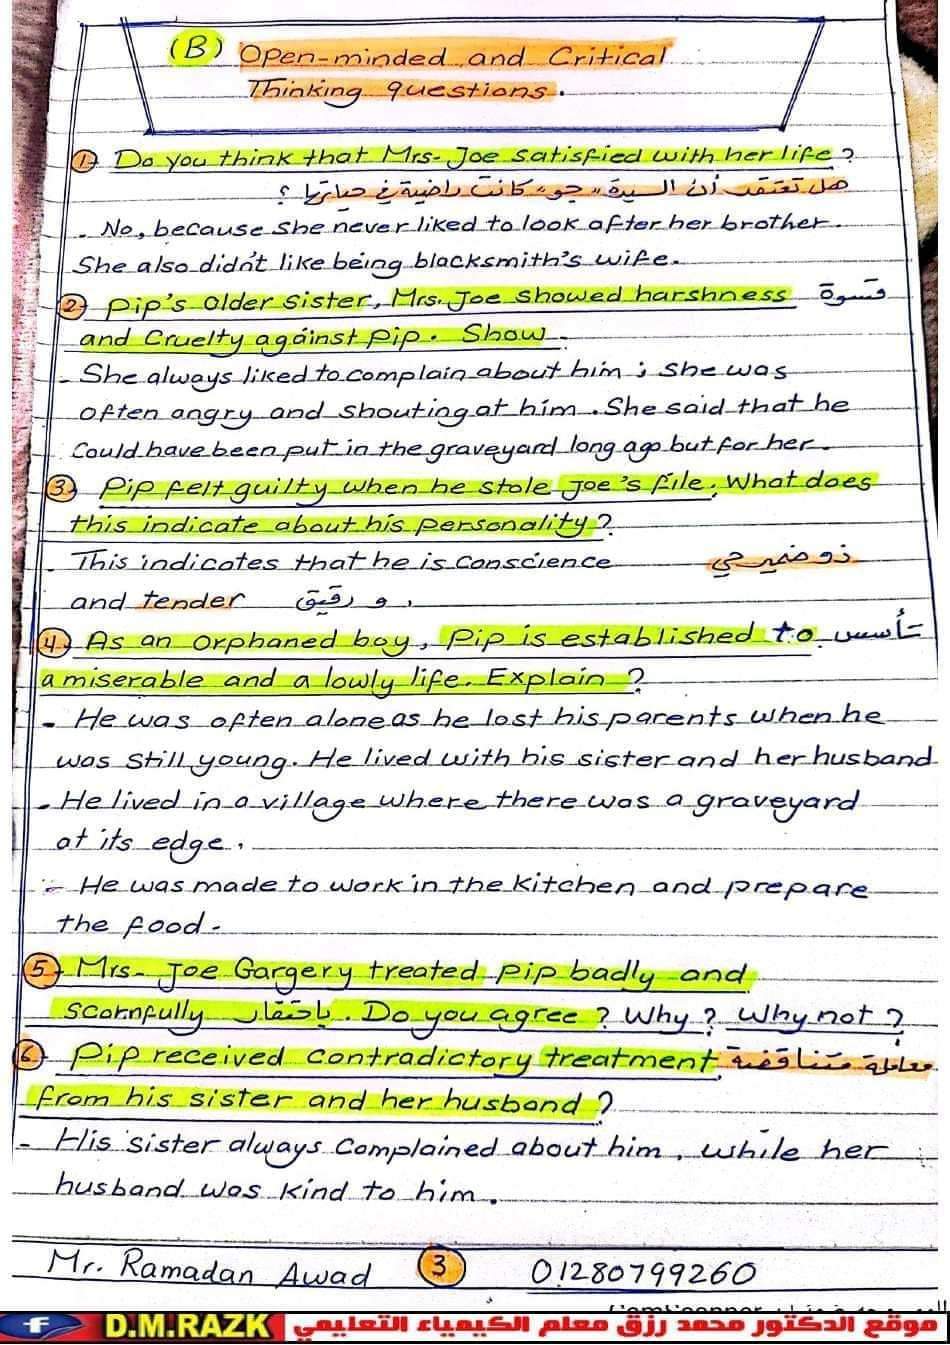 (B) Open-minded and Critical
Thinking questions.
1) Do you think that Mrs. Joe satisfied with her life?
هل تعتقد أن السيدة "جو" كانت راضية في حياتها ؟
- No, because she never liked to look after her brother.
She also didn't like being blacksmith's wife.
2) Pip's older sister, Mrs. Joe showed harshness قسوة
and Cruelty against pip. Show.
- She always liked to complain about him; She was
often angry and shouting at him. She said that he
Could have been put in the graveyard long ago but for her.
3) Pip felt guilty when he stole Joe's file. What does
this indicate about his personality?
- This indicates that he is Conscience ذو ضمير حي
and tender و رقيق.
4) As an orphaned boy, Pip is established to تأسس
a miserable and a lowly life. Explain?
- He was often alone as he lost his parents when he
was still young. He lived with his sister and her husband
- He lived in a village where there was a graveyard
at its edge.
- He was made to work in the kitchen and prepare
the food.
5) Mrs. Joe Gargery treated pip badly and
scornfully باحتقار. Do you agree? Why? Why not?
6) Pip received contradictory treatment معاملة متناقضة
from his sister and her husband?
- His sister always Complained about him, while her
husband was kind to him.
Mr. Ramadan Awad 3 01280799260
f D.M.RAZK موقع الدكتور محمد رزق معلم الكيمياء التعليمي